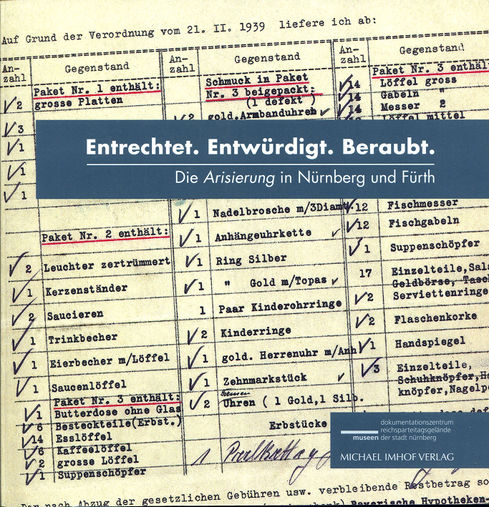 Auf Grund der Verordnung vom 21. II. 1939 liefere ich ab:
An-
zahl
Gegenstand
An-
zahl
Gegenstand
An-
zahl
Gegenstand
Paket Nr. 1 enthält:
2 grosse Platten
3
1
1
1
Schmuck in Paket
Nr. 3 beigepackt:
(1 defekt )
gold.Armbanduhren
Paket Nr. 3 enthäl
14 Löffel gross
14 Gabeln "
14 Messer 2
Löffel mittel
Entrechtet. Entwürdigt. Beraubt.
Die Arisierung in Nürnberg und Fürth
Paket Nr. 2 enthält:
2 Leuchter zertrümmert
1 Kerzenständer
2 Saucieren
1 Trinkbecher
1 Eierbecher m/Löffel
1 Saucenlöffel
Paket Nr. 3 enthält:
1 Butterdose ohne Glas
6 Besteckteile(Erbst.)
14 Esslöffel
6 Kaffeelöffel
2 grosse Löffel
1 Suppenschöpfer
1 Nadelbrosche m/3Diamt.
1 Anhängeuhrkette
1 Ring Silber
1 " Gold m/Topas
1 Paar Kinderohrringe
2 Kinderringe
1 gold. Herrenuhr m/Anh
1 Zehnmarkstück
2 Uhren ( 1 Gold,1 Silb.
Erbstücke
12 Fischmesser
12 Fischgabeln
1 Suppenschöpfer
17 Einzelteile,Sal
Geldbörse, Tasc
2 Serviettenringe
2 Flaschenkorke
1 Handspiegel
3 Einzelteile,
Schuhknöpfer,H
knöpfer,Nagelp
dokumentationszentrum
reichsparteitagsgelände
museen der stadt nürnberg
MICHAEL IMHOF VERLAG
nach Abzug der gesetzlichen Gebühren usw. verbleibende Restbetrag so
Bayerische Hypotheken-